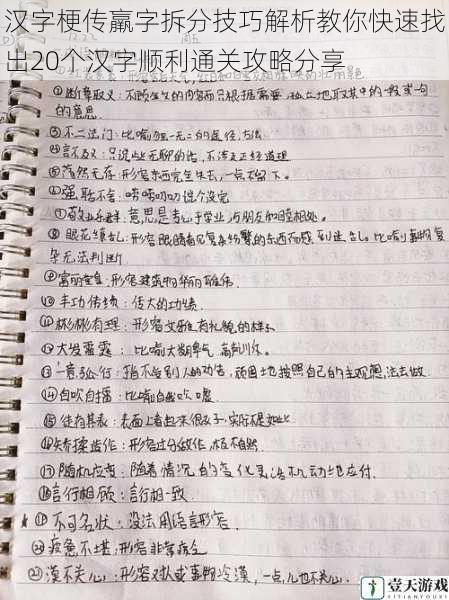 汉字梗传赢字拆分技巧解析教你快速找
出20个汉字顺利通关攻略分享
②断章取义：不顾全文的内容而只根据需要
的意思
③不二法门：比喻独一无二的途径,方法
④言不及义：只说些无聊的话，不涉及正经道理
⑤荡然无存：形容东西完全失去，一点不留下。
⑥强聒不舍：唠唠叨叨说个没完
⑦敬业乐群：意思是专心于学业,与朋友和睦相处。
⑧眼花缭乱：形容眼睛看见复杂纷繁的东西而感到迷乱。比喻事物复
杂无法判断.
⑨富丽堂皇：形容建筑物华丽雄伟.
⑩丰功伟绩：伟大的功绩.
⑪彬彬有理：形容文雅有礼貌的样子
⑫大发雷霆：比喻大发脾气 高声训斥。
⑬一意孤行：指不听别人的劝告，顽固地按照自己的主观想法去做.
⑭自吹自擂：比喻自我吹嘘
⑮徒有其表：表面上看起来很好,实际
⑯矫揉造作：形容过分做作,极不自然.
⑰随机应变：随着情况的变化灵活机动地应付.
⑱言行相顾：言行一致
⑲不可名状：没法用语言形容.
⑳疲惫不堪：形容非常疲乏
㉑漠不关心：形容对人或事物冷漠，一点儿也不关心.
壹天游戏
YITIANYOUXI